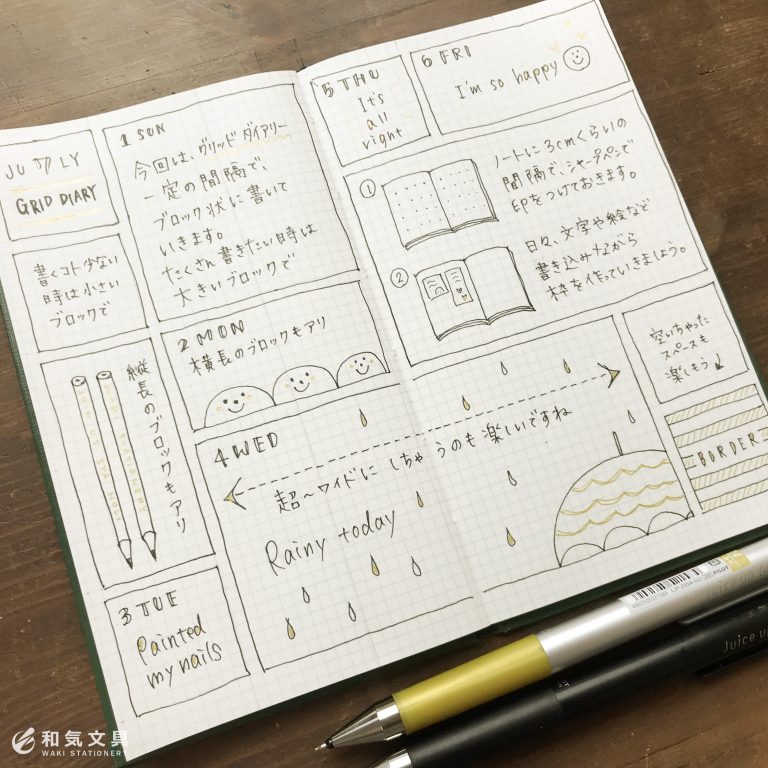 JULY
GRID DIARY
1 SUN
今回は、グリッドダイアリー
一定の間隔で、
ブロック状に書いて
いきます。
たくさん書きたい時は
大きいブロックで
書くコト少ない
時は小さい
ブロックで
2 MON
横長のブロックもアリ
縦長のブロックもアリ
WAKI STATIONERY
3 TUE
Painted
my nails
4 WED
超〜ワイドにしちゃうのも楽しいですね
Rainy today
5 THU
It's
all
right
6 FRI
I'm so happy
①
ノートに3cmくらいの
間隔で、シャープペンで
印をつけておきます。
②
日々、文字や絵など
書き込みながら
枠を作っていきましょう。
空いちゃった
スペースも
楽しもう
BORDER
PILOT
Juice up
和気文具
WAKI STATIONERY